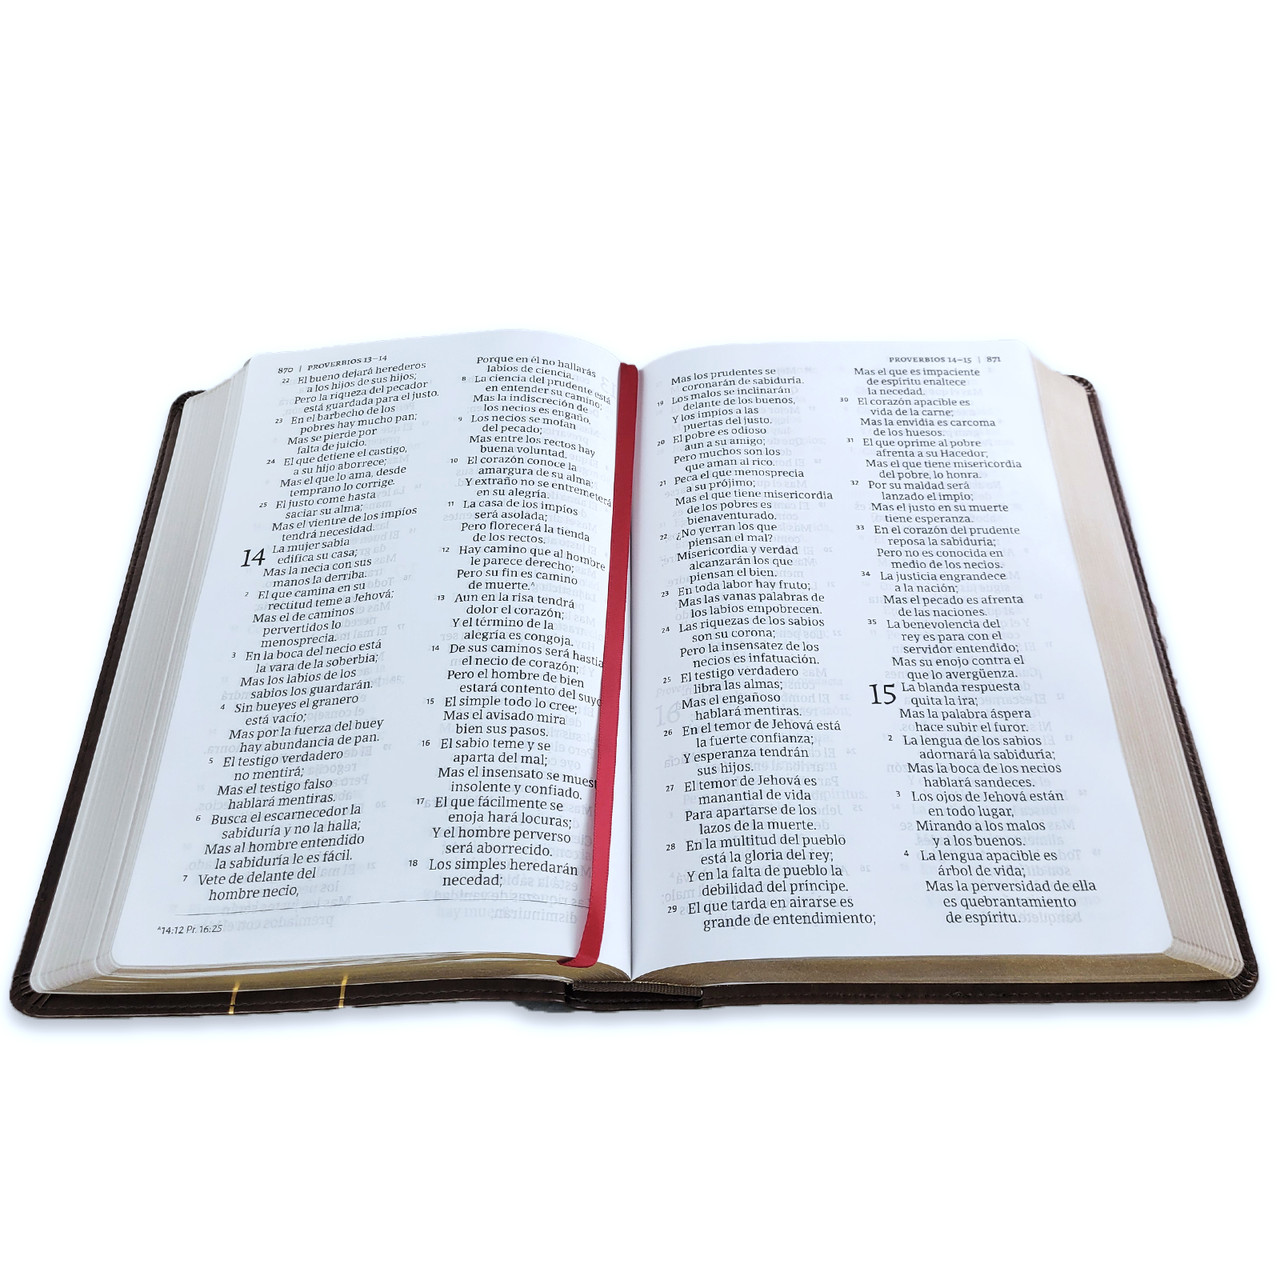 870 | PROVERBIOS 13–14
22 El bueno dejará herederos
a los hijos de sus hijos;
Pero la riqueza del pecador
está guardada para el justo.
23 En el barbecho de los
pobres hay mucho pan;
Mas se pierde por
falta de juicio.
24 El que detiene el castigo,
a su hijo aborrece;
Mas el que lo ama, desde
temprano lo corrige.
25 El justo come hasta
saciar su alma;
Mas el vientre de los impíos
tendrá necesidad.
14 La mujer sabia
edifica su casa;
Mas la necia con sus
manos la derriba.
2 El que camina en su
rectitud teme a Jehová;
Mas el de caminos
pervertidos lo
menosprecia.
3 En la boca del necio está
la vara de la soberbia;
Mas los labios de los
sabios los guardarán.
4 Sin bueyes el granero
está vacío;
Mas por la fuerza del buey
hay abundancia de pan.
5 El testigo verdadero
no mentirá;
Mas el testigo falso
hablará mentiras.
6 Busca el escarnecedor la
sabiduría y no la halla;
Mas al hombre entendido
la sabiduría le es fácil.
7 Vete de delante del
hombre necio,
Porque en él no hallarás
labios de ciencia.
8 La ciencia del prudente está
en entender su camino;
Mas la indiscreción de
los necios es engaño.
9 Los necios se mofan
del pecado;
Mas entre los rectos hay
buena voluntad.
10 El corazón conoce la
amargura de su alma;
Y extraño no se entremeterá
en su alegría.
11 La casa de los impíos
será asolada;
Pero florecerá la tienda
de los rectos.
12 Hay camino que al hombre
le parece derecho;
Pero su fin es camino
de muerte.^
13 Aun en la risa tendrá
dolor el corazón;
Y el término de la
alegría es congoja.
14 De sus caminos será hastia
el necio de corazón;
Pero el hombre de bien
estará contento del suyo
15 El simple todo lo cree;
Mas el avisado mira
bien sus pasos.
16 El sabio teme y se
aparta del mal;
Mas el insensato se muest
insolente y confiado.
17 El que fácilmente se
enoja hará locuras;
Y el hombre perverso
será aborrecido.
18 Los simples heredarán
necedad;
^14:12 Pr. 16:25
PROVERBIOS 14–15 | 871
Mas los prudentes se
coronarán de sabiduría.
19 Los malos se inclinarán
delante de los buenos,
Y los impíos a las
puertas del justo.
20 El pobre es odioso
aun a su amigo;
Pero muchos son los
que aman al rico.
21 Peca el que menosprecia
a su prójimo;
Mas el que tiene misericordia
de los pobres es
bienaventurado.
22 ¿No yerran los que
piensan el mal?
Misericordia y verdad
alcanzarán los que
piensan el bien.
23 En toda labor hay fruto;
Mas las vanas palabras de
los labios empobrecen.
24 Las riquezas de los sabios
son su corona;
Pero la insensatez de los
necios es infatuación.
25 El testigo verdadero
libra las almas;
Mas el engañoso
hablará mentiras.
26 En el temor de Jehová está
la fuerte confianza;
Y esperanza tendrán
sus hijos.
27 El temor de Jehová es
manantial de vida
Para apartarse de los
lazos de la muerte.
28 En la multitud del pueblo
está la gloria del rey;
Y en la falta de pueblo la
debilidad del príncipe.
29 El que tarda en airarse es
grande de entendimiento;
Mas el que es impaciente
de espíritu enaltece
la necedad.
30 El corazón apacible es
vida de la carne;
Mas la envidia es carcoma
de los huesos.
31 El que oprime al pobre
afrenta a su Hacedor;
Mas el que tiene misericordia
del pobre, lo honra.
32 Por su maldad será
lanzado el impío;
Mas el justo en su muerte
tiene esperanza.
33 En el corazón del prudente
reposa la sabiduría;
Pero no es conocida en
medio de los necios.
34 La justicia engrandece
a la nación;
Mas el pecado es afrenta
de las naciones.
35 La benevolencia del
rey es para con el
servidor entendido;
Mas su enojo contra el
que lo avergüenza.
15 La blanda respuesta
quita la ira;
Mas la palabra áspera
hace subir el furor.
2 La lengua de los sabios
adornará la sabiduría;
Mas la boca de los necios
hablará sandeces.
3 Los ojos de Jehová están
en todo lugar,
Mirando a los malos
y a los buenos.
4 La lengua apacible es
árbol de vida;
Mas la perversidad de ella
es quebrantamiento
de espíritu.